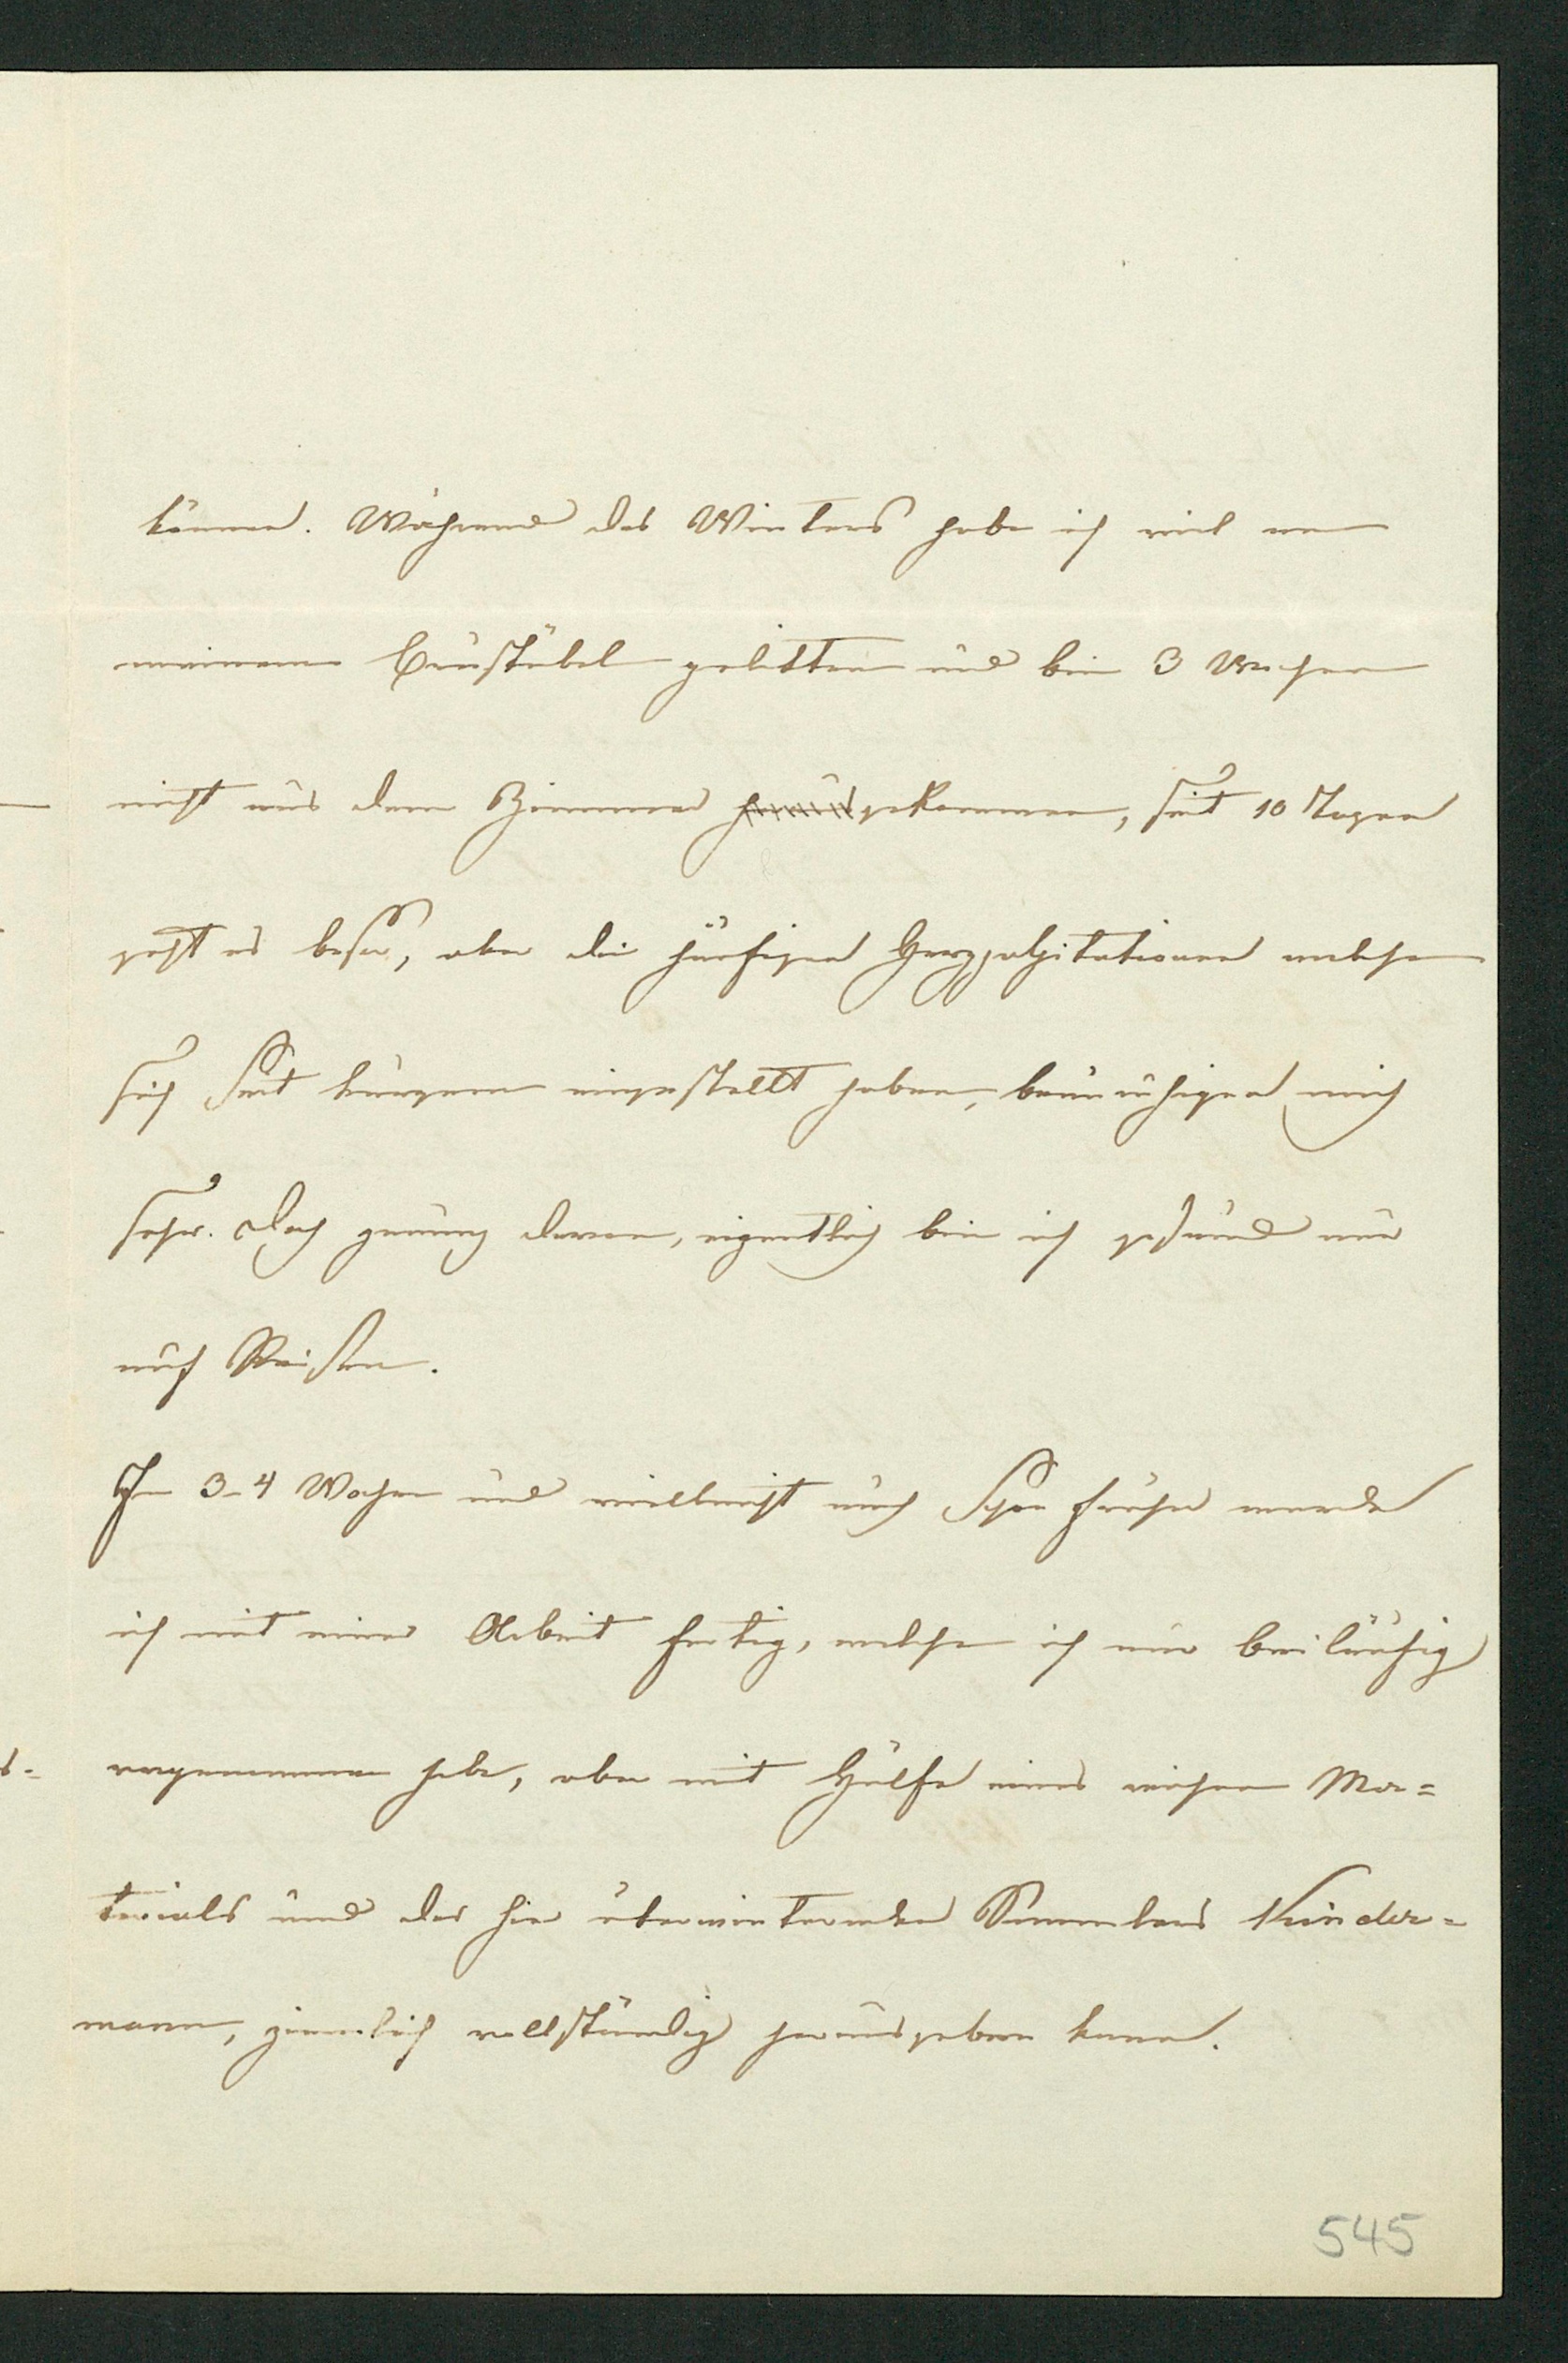 können. Während des Winters habe ich viel an
meinem Brustübel gelitten und bin 3 Wochen
nicht aus dem Zimmer heraus gekommen, seit 10 Tagen
geht es besser, aber die häufigen Herzpalpitationen welche
sich seit kurzem eingestellt haben, beunruhigen mich
sehr. Doch genung davon, eigentlich bin ich gesund nur
auf Reisen.
In 3-4 Wochen und vielleicht auch schon früher werde
ich mit einer Arbeit fertig, welche ich nur beiläufig
vorgenommen habe, aber mit Hülfe eines reichen Ma=
terials und des hier überwinternden Sammlers Kinder=
mann, ziemlich vollständig herausgeben kann.
545